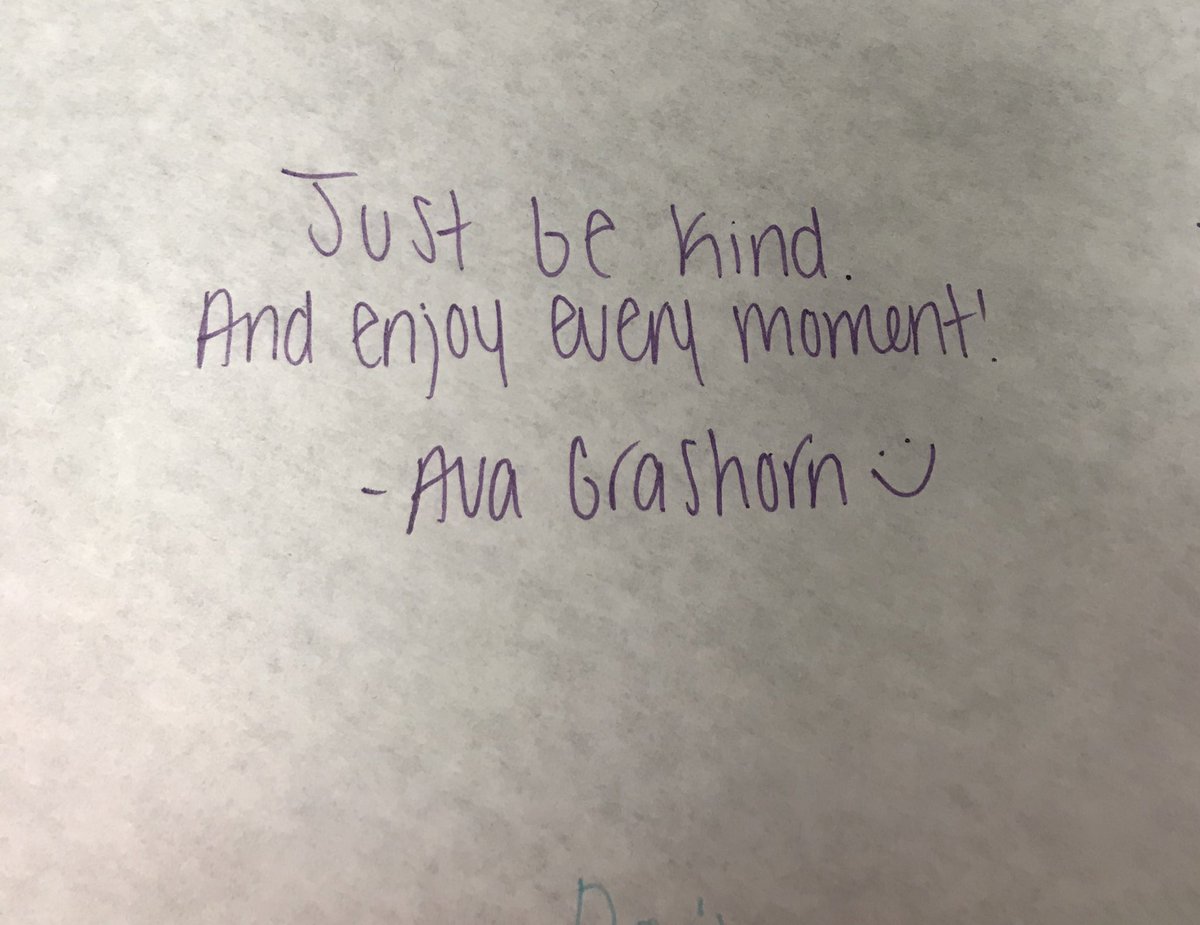 Just be kind.
And enjoy every moment!
- Ava Grashorn :)